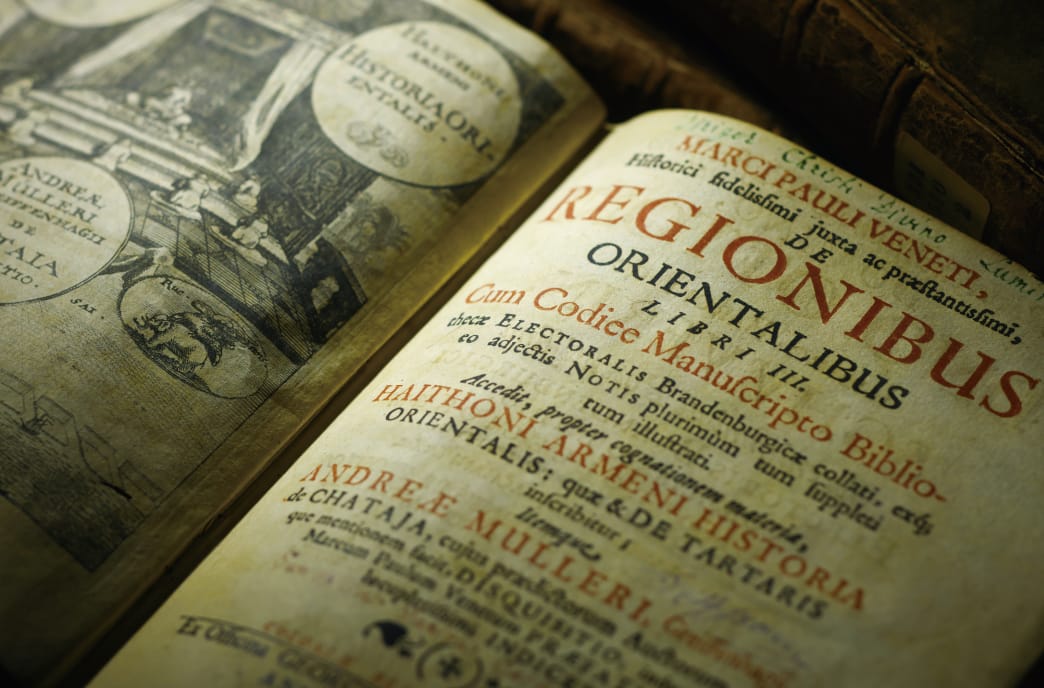 HAYTHONI
ARMENI
HISTORIA ORI-
ENTALIS.
ANDREÆ
MÜLLERI
GREIFFENHAGII
DE
CHATAIA
SAI.
MARCI PAULI VENETI,
Hiſtorici fideliſſimi juxta ac præſtantiſſimi,
DE
REGIONIBUS
ORIENTALIBUS
LIBRI III.
Cum Codice Manuſcripto Biblio-
thecæ ELECTORALIS Brandenburgicæ collati, exq́;
eo adjectis NOTIS plurimùm tum ſuppleti
tum illuſtrati.
Accedit, propter cognationem materiæ,
HAITHONI ARMENI HISTORIA
ORIENTALIS: quæ & DE TARTARIS
inſcribitur;
Itemque
ANDREÆ MULLERI, Greiffenhagii,
de CHATAJA, cujus prædictorum Auctorum
que mentionem facit, DISQUISITIO,
Marcum Paulum Venetum PRÆFATIO,
locupletiſſimi INDICES.
Ex Officina GEORGII